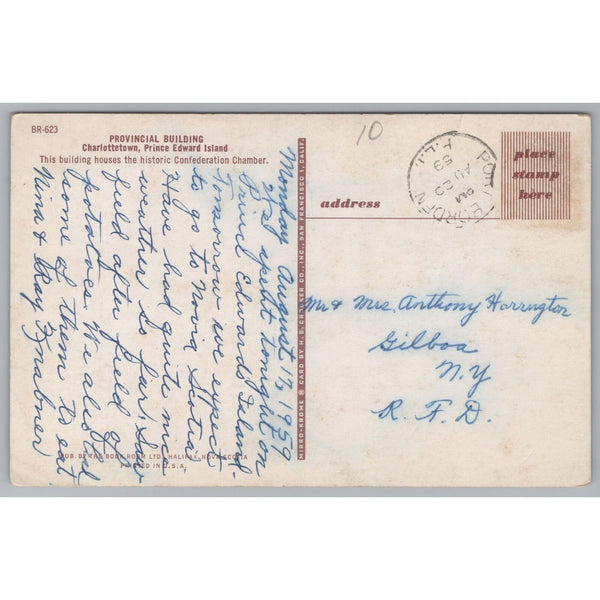 BR-623
PROVINCIAL BUILDING
Charlottetown, Prince Edward Island
This building houses the historic Confederation Chamber.
Monday August 17, 1959
spent tonight on
Prince Edward Island.
Tomorrow we expect
to go to Nova Scotia
Have had quite nice
wether so far. Saw
field after field of
potatoes. We also had
some of them to eat
Nina & Ray
PUB. BY THE BOOK ROOM LTD., HALIFAX, NOVA SCOTIA
PRINTED IN U.S.A.
MIRRO-KROME ® CARD BY H. S. CROCKER CO., INC., SAN FRANCISCO 1, CALIF.
10
PORT BORDEN
PM
AU
59
P.E.I.
place
stamp
here
address
Mr & Mrs. Anthony Harrington
Gilboa
N.Y
R. F. D.